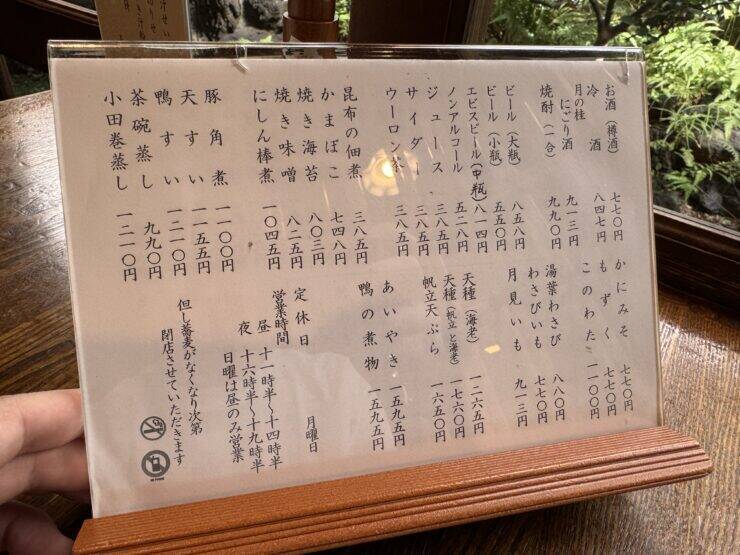 お酒(樽酒) 七七〇円
冷酒 八四七円
月の桂
にごり酒 九一三円
焼酎(一合) 九九〇円
ビール(大瓶) 八五八円
ビール(小瓶) 五五〇円
エビスビール(中瓶) 八一四円
ノンアルコール 五二八円
ジュース 三八五円
サイダー 三八五円
ウーロン茶 三八五円
昆布の佃煮 三八五円
かまぼこ 七四八円
焼き海苔 八〇三円
焼き味噌 八二五円
にしん棒煮 一〇四五円
豚角煮 一一〇〇円
天すい 一一五五円
鴨すい 一二一〇円
茶碗蒸し 九九〇円
小田巻蒸し 一二一〇円
かにみそ 七七〇円
もずく 七七〇円
このわた 一一〇〇円
湯葉わさび 八八〇円
わさびいも 七七〇円
月見いも 九一三円
天種(海老) 一二六五円
天種(帆立と海老) 一七六〇円
帆立天ぷら 一六五〇円
あいやき 一五九五円
鴨の煮物 一五九五円
定休日 月曜日
営業時間
昼 十一時半〜十四時半
夜 十六時半〜十九時半
日曜は昼のみ営業
但し蕎麦がなくなり次第
閉店させていただきます